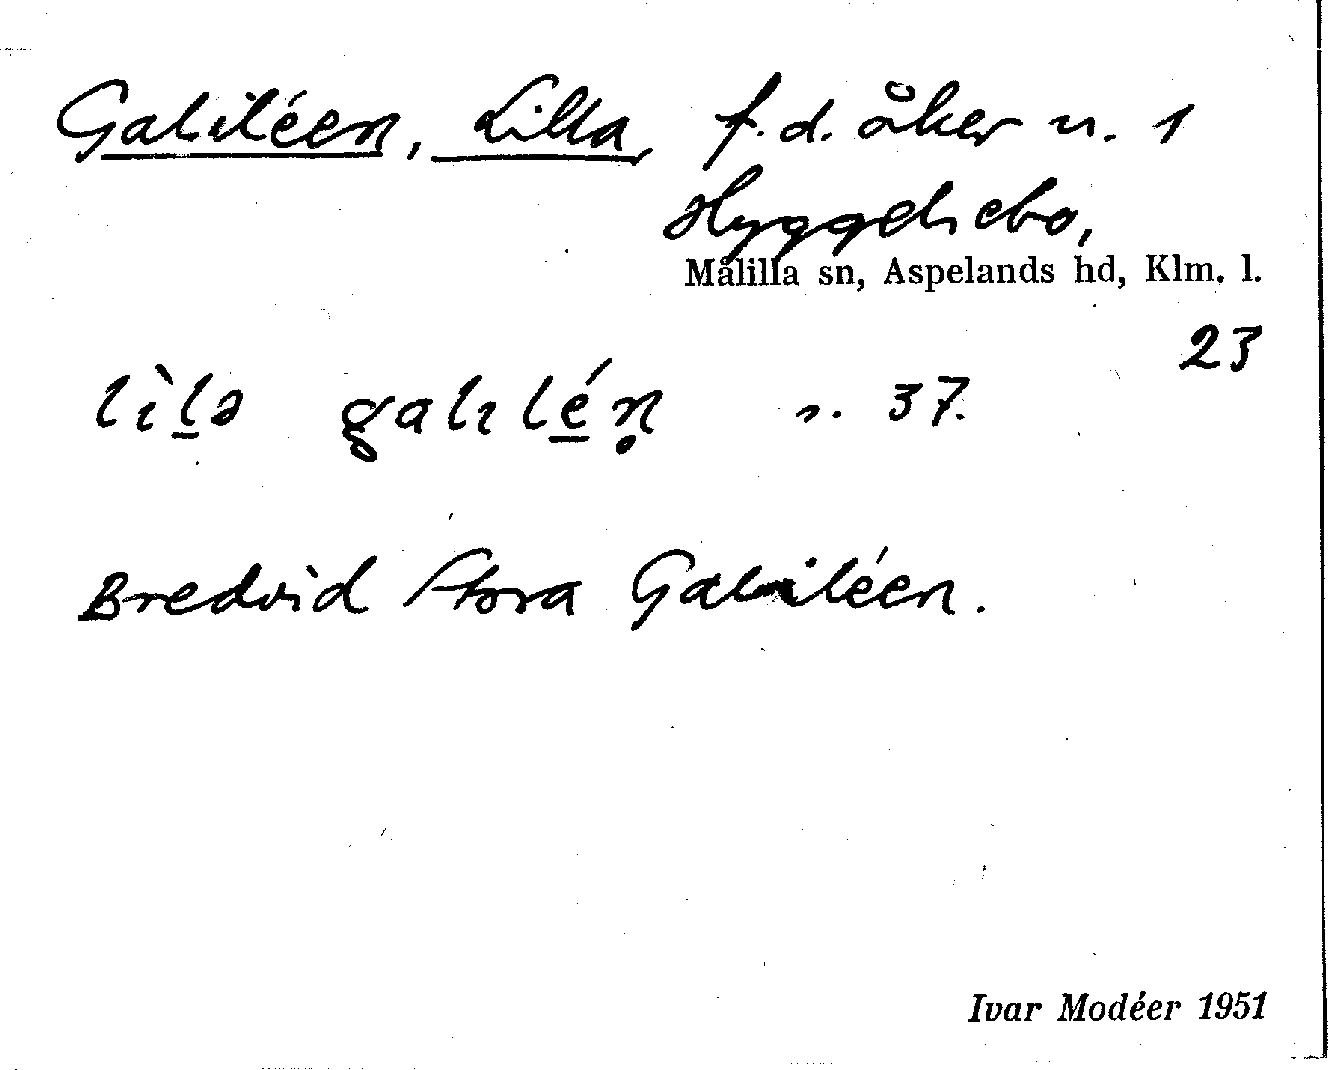 Galiléen, Lilla, f.d. åker n. 1
Hyggelsebo,
Målilla sn, Aspelands hd, Klm. l.
23
lìl̲ə galılé̲ṇ n. 37.
Bredvid Stora Galiléen.
Ivar Modéer 1951